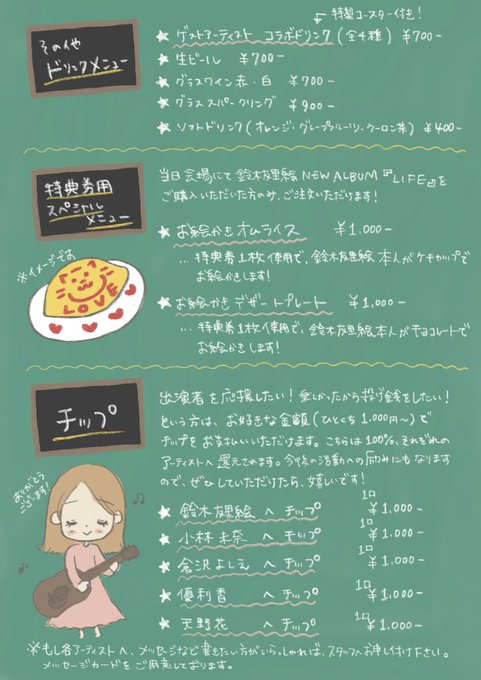 特製コースター付き!
その他
ドリンクメニュー
★ ゲストアーティスト コラボドリンク(全4種) ¥700-
★ 生ビール ¥700-
★ グラスワイン赤・白 ¥700-
★ グラススパークリング ¥900-
★ ソフトドリンク(オレンジ・グレープフルーツ・ウーロン茶) ¥400-
特典券用
スペシャル
メニュー
当日会場にて鈴木友里絵 NEW ALBUM『LIFE』を
ご購入いただいた方のみ、ご注文いただけます!
※イメージです
LOVE
★ お絵かきオムライス ¥1,000-
… 特典券1枚使用で、鈴木友里絵本人がケチャップで
お絵かきします!
★ お絵かきデザートプレート ¥1,000-
… 特典券1枚使用で、鈴木友里絵本人がチョコレートで
お絵かきします!
チップ
出演者を応援したい!楽しかったから投げ銭をしたい!
という方は、お好きな金額(ひとくち1,000円〜)で
チップをお支払いいただけます。こちらは100%、それぞれの
アーティストへ還元されます。今後の活動への励みにもなります
ので、ぜひしていただけたら、嬉しいです!
ありがとう
ございます!
★ 鈴木友里絵 へ チップ 1口 ¥1,000-
★ 小林未奈 へ チップ 1口 ¥1,000-
★ 倉沢よしえ へ チップ 1口 ¥1,000-
★ 優利香 へ チップ 1口 ¥1,000-
★ 天野花 へ チップ 1口 ¥1,000-
※もし各アーティストへ、メッセージなど書きたい方がいらっしゃれば、スタッフへお申し付け下さい。
メッセージカードをご用意しております。